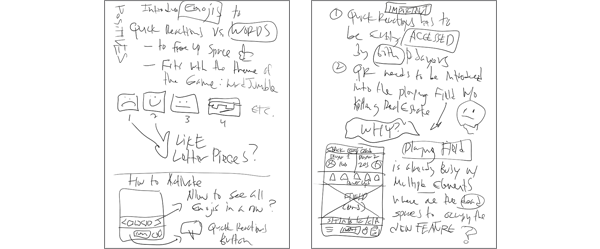 POSITIVES
Introduce Emojis to
Quick Reactions VS WORDS
— to free up space
— Fits with the theme of
the Game: word Jumble
1 2 3 4 ETC.
LIKE
Letter Pieces?
How to Activate
How to see all
Emojis in a row?
Quick Reactions
Button
IMPORTANT
1 Quick Reactions has to
be Easily ACCESSED
by both players
2 QR needs to be Introduced
into the playing Field w/o
killing Real Estate
WHY?
Playing Field
is already Busy w/
Multiple Elements
where are the
spaces to occupy the
NEW FEATURE?